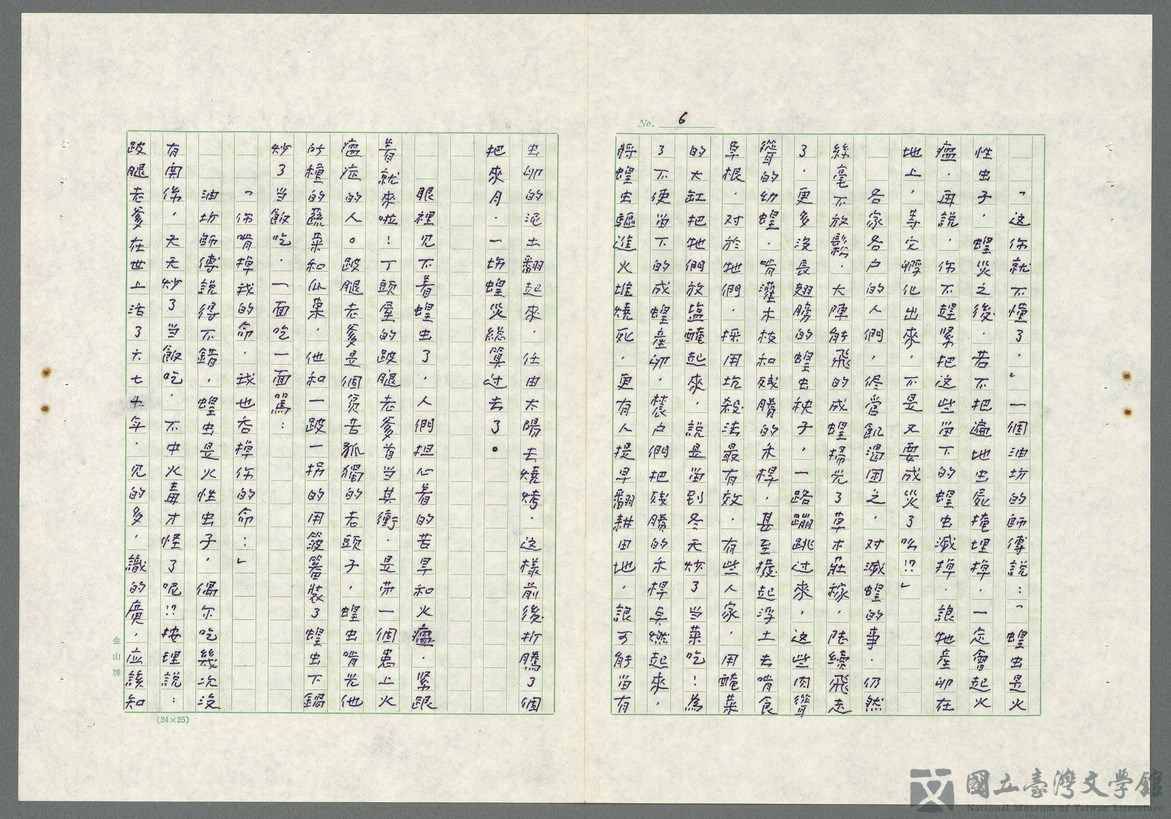 No. 6
「这你就不懂了.」一個油坊的師傅說:「蝗虫是火
性虫子.蝗災之後.若不把遍地虫屍掩埋掉.一定會起火
瘟.再說.你不趕緊把这些留下的蝗虫滅掉.讓牠產卵在
地上.等它孵化出來.不是又要成災了吆!?」
各家各户的人們.儘管飢渴困乏.对滅蝗的事.仍然
絲毫不放鬆.大陣能飛的成蝗掃光了草木莊稼.陸續飛走
了.更多沒長翅膀的蝗虫秧子.一路蹦跳过來.这些肉聳
聳的幼蝗.啃灌木枝和殘賸的禾桿.甚至擾起浮土去啃食
草根.对於牠們.採用坑殺法最有效.有些人家.用醃菜
的大缸把牠們放塩醃起來.說是留到冬天炒了当菜吃!為
了不使留下的成蝗產卵.農户們把殘賸的禾桿点燃起來.
將蝗虫驅進火堆燒死.更有人提早翻耕田地.讓可能留有
虫卵的泥土翻起來.任由太陽去燒烤.这樣前後折騰了個
把來月.一場蝗災総算过去了。
眼裡見不着蝗虫了.人們担心着的苦旱和火瘟.緊跟
着就來啦!丁頭屋的跛腿老爹首当其衝.是第一個患上火
瘟症的人。跛腿老爹是個貧苦孤獨的老頭子.蝗虫啃光他
所種的蔬菜和瓜菓.他和一跛一拐的用笯簍裝了蝗虫下鍋
炒了当飯吃.一面吃一面罵:
「你啃掉我的命.我也吞掉你的命:」
油坊師傅說得不錯.蝗虫是火性虫子.偶尔吃幾次沒
有関係.天天炒了当飯吃.不中火毒才怪了呢!?按理說:
跛腿老爹在世上活了六七十年.見的多.識的廣.应該知
(24×25)
金山牌
國立臺灣文學館
National Museum of Taiwan Literature